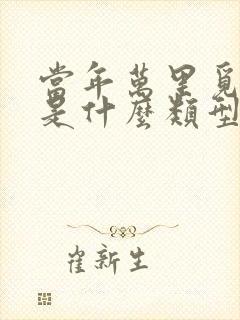 當年萬里覓
是什麼類型
崔新生